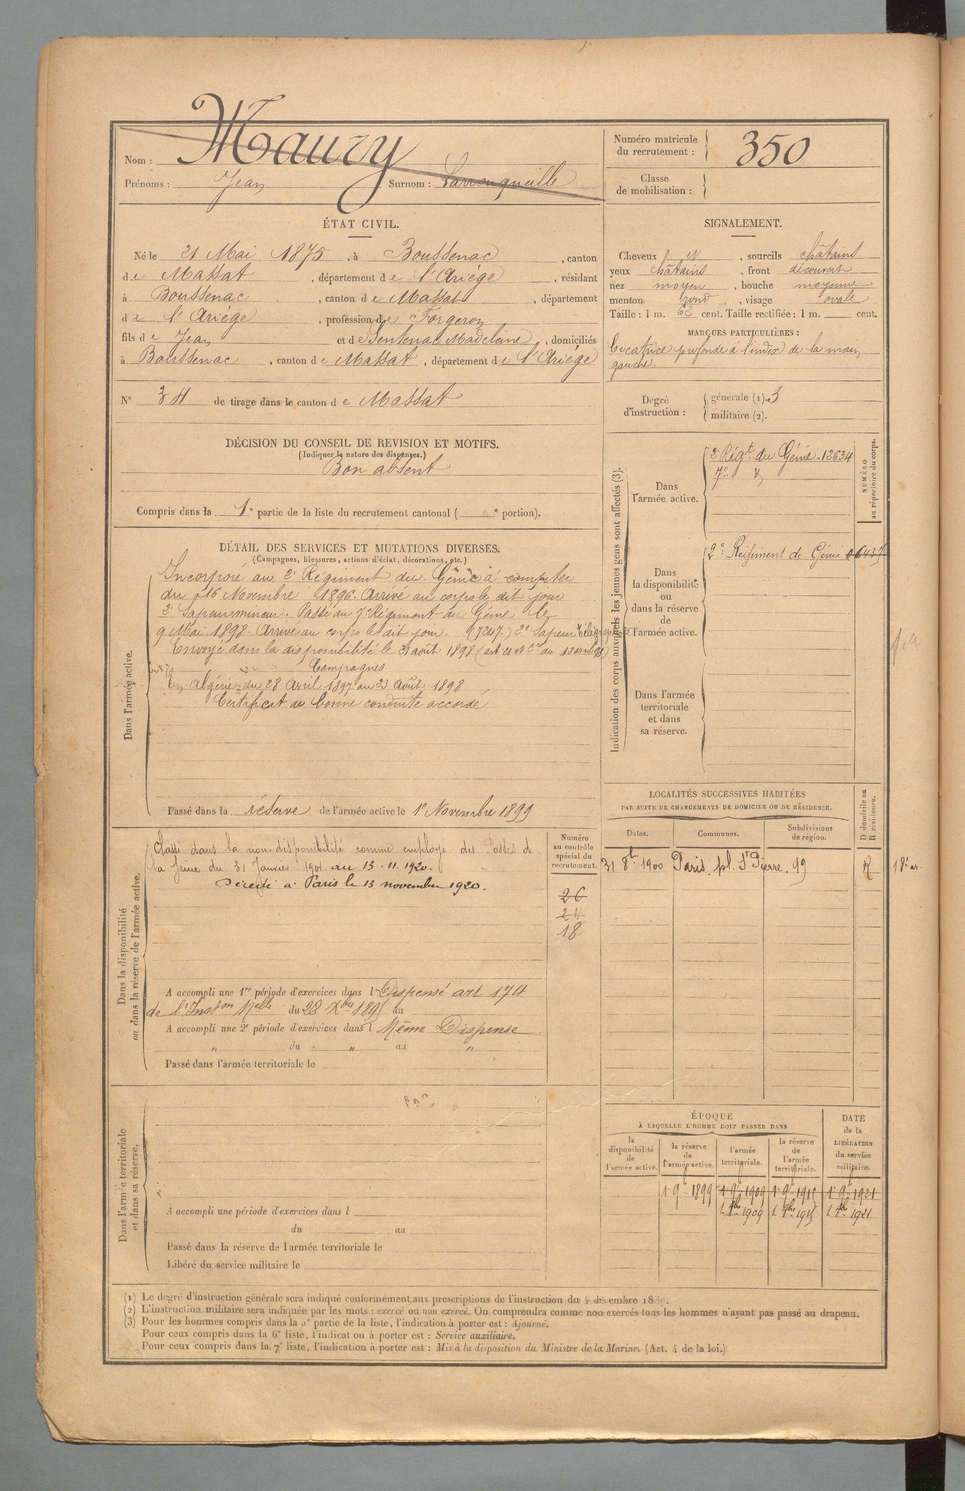 Nom : Maury
Prénoms : Jean Surnom :
Numéro matricule du recrutement : 350
Classe de mobilisation :
ÉTAT CIVIL.
Né le 21 Mai 1875, à Boussenac, canton
de Massat, département de l'Ariége, résidant
à Boussenac, canton de Massat, département
de l'Ariége, profession de Forgeron
fils de Jean et de Sentenac Madeleine, domiciliés
à Boussenac, canton de Massat, département de l'Ariége
N° 34 de tirage dans le canton de Massat
DÉCISION DU CONSEIL DE REVISION ET MOTIFS.
(Indiquer la nature des dispenses.)
Bon absent
Compris dans la 1e partie de la liste du recrutement cantonal ( e portion).
SIGNALEMENT.
Cheveux et, sourcils châtains
yeux châtains, front découvert
nez moyen, bouche moyenne
menton rond, visage ovale
Taille : 1 m. cent. Taille rectifiée : 1 m. cent.
MARQUES PARTICULIÈRES :
Cicatrice profonde à l'index de la main
gauche.
Degré d'instruction : générale (1). 3
militaire (2).
DÉTAIL DES SERVICES ET MUTATIONS DIVERSES.
(Campagnes, blessures, actions d'éclat, décorations, etc.)
Dans l'armée active.
Incorporé au 2e Régiment du Génie à compter
du 16 Novembre 1896. Arrivé au corps le dit jour
2e Sapeur mineur. Passé au 7e Régiment du Génie le
9 Mai 1898 Arrivé au corps le dit jour. 2e Sapeur
Envoyé dans la disponibilité le 31 août 1898
Campagnes
En Algérie du 28 Avril 1897 au 23 Août 1898
Certificat de bonne conduite accordé
Passé dans la réserve de l'armée active le 1er Novembre 1899
Indication des corps auxquels les jeunes gens sont affectés (3).
NUMÉRO au répertoire du corps.
Dans l'armée active.
2e Régt du Génie - 12634
7e
Dans la disponibilité ou dans la réserve de l'armée active.
2e Régiment de Génie
Dans l'armée territoriale et dans sa réserve.
Dans la disponibilité ou dans la réserve de l'armée active.
Classé dans la non-disponibilité comme employé des Postes de
la Seine du 31 Janvier 1901 au 13-11-1920.
Décédé à Paris le 13 novembre 1920.
Numéro au contrôle spécial du recrutement.
26
24
18
A accompli une 1re période d'exercices dans l Dispensé art 174
de l'Inston Melle du 28 Xbre 1895 au
A accompli une 2e période d'exercices dans l Même Dispense
du " au "
Passé dans l'armée territoriale le
LOCALITÉS SUCCESSIVES HABITÉES
PAR SUITE DE CHANGEMENTS DE DOMICILE OU DE RÉSIDENCE.
D domicile ou R résidence.
Dates. Communes. Subdivisions de région.
31 8bre 1900 Paris, pl. St Pierre, 99 R 18e ar.
Dans l'armée territoriale et dans sa réserve.
A accompli une période d'exercices dans l
du au
Passé dans la réserve de l'armée territoriale le
Libéré du service militaire le
ÉPOQUE
À LAQUELLE L'HOMME DOIT PASSER DANS
la disponibilité de l'armée active. la réserve de l'armée active. l'armée territoriale. la réserve de l'armée territoriale.
DATE de la LIBÉRATION du service militaire.
1er 9bre 1899 1er 9bre 1909 1er 9bre 1915 1er 9bre 1921
1er 8bre 1909 1er 8bre 1915 1er 8bre 1921
(1) Le degré d'instruction générale sera indiqué conformément aux prescriptions de l'instruction du 4 décembre 1889.
(2) L'instruction militaire sera indiquée par les mots : exercé ou non exercé. On comprendra comme non exercés tous les hommes n'ayant pas passé au drapeau.
(3) Pour les hommes compris dans la 5e partie de la liste, l'indication à porter est : Ajourné.
Pour ceux compris dans la 6e liste, l'indication à porter est : Service auxiliaire.
Pour ceux compris dans la 7e liste, l'indication à porter est : Mis à la disposition du Ministre de la Marine. (Art. 4 de la loi.)